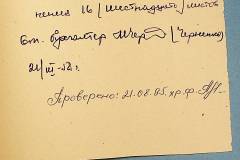 нено 16 (шестнадцать) листов
Ст. бухгалтер (Черненко)
21/III-52 г.
Проверено: 21.08.85. хр. ф.